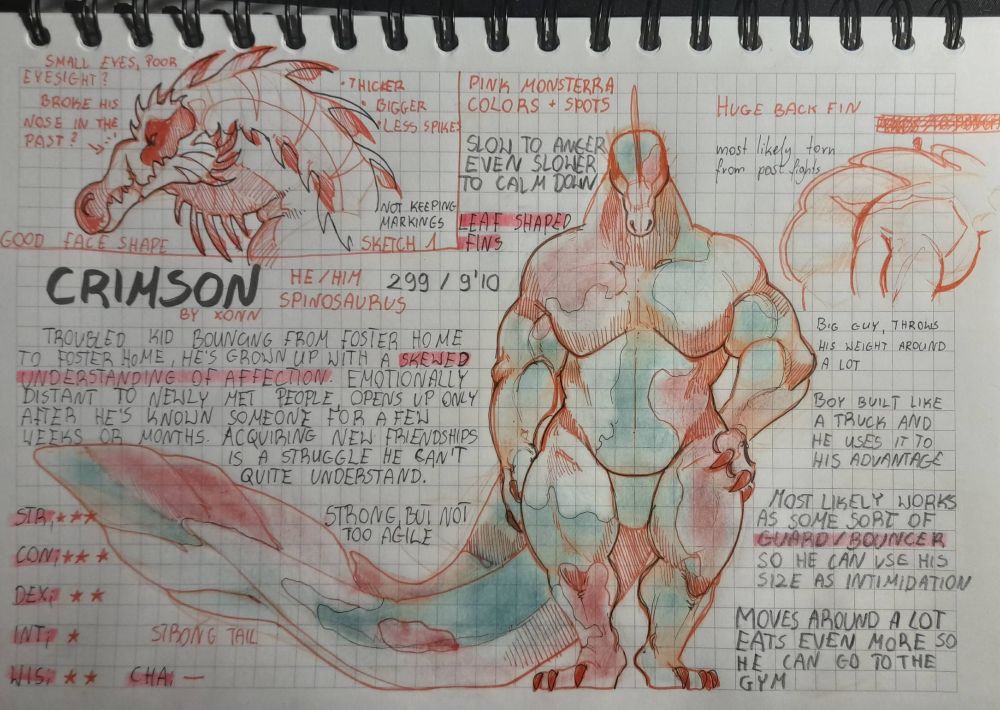 SMALL EYES, POOR
EYESIGHT?
BROKE HIS
NOSE IN THE
PAST?
• THICKER
• BIGGER
• LESS SPIKES
NOT KEEPING
MARKINGS
SKETCH 1
GOOD FACE SHAPE
PINK MONSTERRA
COLORS + SPOTS
SLOW TO ANGER
EVEN SLOWER
TO CALM DOWN
LEAF SHAPED
FINS
HUGE BACK FIN
most likely torn
from past fights
CRIMSON
BY XONN
HE/HIM
SPINOSAURUS
299 / 9'10
TROUBLED KID BOUNCING FROM FOSTER HOME
TO FOSTER HOME, HE'S GROWN UP WITH A SKEWED
UNDERSTANDING OF AFFECTION. EMOTIONALLY
DISTANT TO NEWLY MET PEOPLE, OPENS UP ONLY
AFTER HE'S KNOWN SOMEONE FOR A FEW
WEEKS OR MONTHS. ACQUIRING NEW FRIENDSHIPS
IS A STRUGGLE HE CAN'T
QUITE UNDERSTAND.
STRONG, BUT NOT
TOO AGILE
STR; ★★★
CON; ★★★
DEX; ★★
INT; ★
WIS; ★★
CHA; —
STRONG TAIL
BIG GUY, THROWS
HIS WEIGHT AROUND
A LOT
BOY BUILT LIKE
A TRUCK AND
HE USES IT TO
HIS ADVANTAGE
MOST LIKELY WORKS
AS SOME SORT OF
GUARD/BOUNCER
SO HE CAN USE HIS
SIZE AS INTIMIDATION
MOVES AROUND A LOT
EATS EVEN MORE SO
HE CAN GO TO THE
GYM